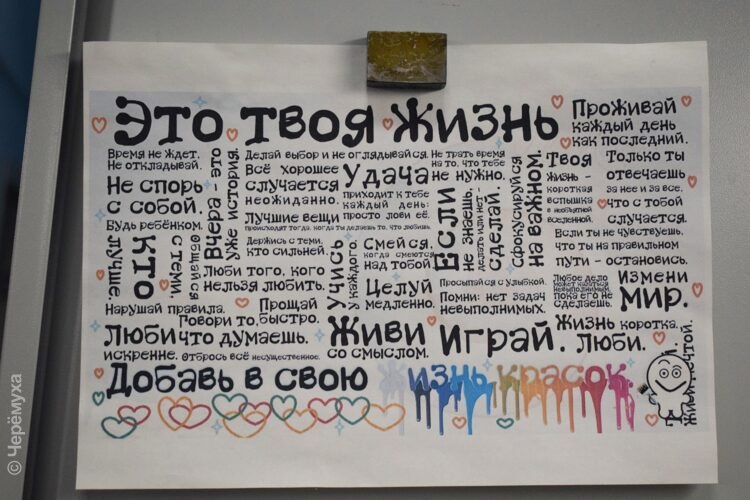 Это твоя жизнь
Проживай
каждый день
как последний.
Время не ждет.
Не откладывай.
Не спорь
с собой.
Будь ребёнком.
Вчера - это
уже история.
Делай выбор и не оглядывайся.
Всё хорошее
случается
неожиданно.
Лучшие вещи
происходят тогда, когда ты делаешь то, что любишь.
Удача
приходит к тебе
каждый день:
просто лови её.
Не трать время
на то, что тебе
не нужно.
Если
не знаешь,
делать или нет -
сделай.
Сфокусируйся
на важном.
Твоя
жизнь -
короткая
вспышка
в необъятной
вселенной.
Только ты
отвечаешь
за нее и за все,
что с тобой
случается.
Если ты не чувствуешь,
что ты на правильном
пути - остановись.
Общайся
с теми,
кто
лучше.
Держись с теми,
кто сильней.
Люби того, кого
нельзя любить.
Учись
у каждого.
Смейся,
когда смеются
над тобой.
Целуй
медленно.
Просыпайся с улыбкой.
Помни: нет задач
невыполнимых.
Любое дело
может казаться
невыполнимым,
пока его не
сделаешь.
Измени
мир.
Нарушай правила.
Прощай
быстро.
Говори то,
что думаешь.
Люби
искренне.
Отбрось всё несущественное.
Живи
со смыслом.
Играй.
Жизнь коротка.
Люби.
Живи мечтой.
Добавь в свою
изнь красок
© Черёмуха